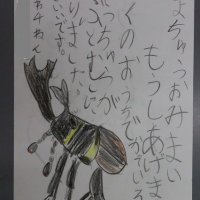 ょちゅうおみまい
もうしあげま
くのおうちでかっている
ちゅうが
ぶとむしに
りました。
いいです。